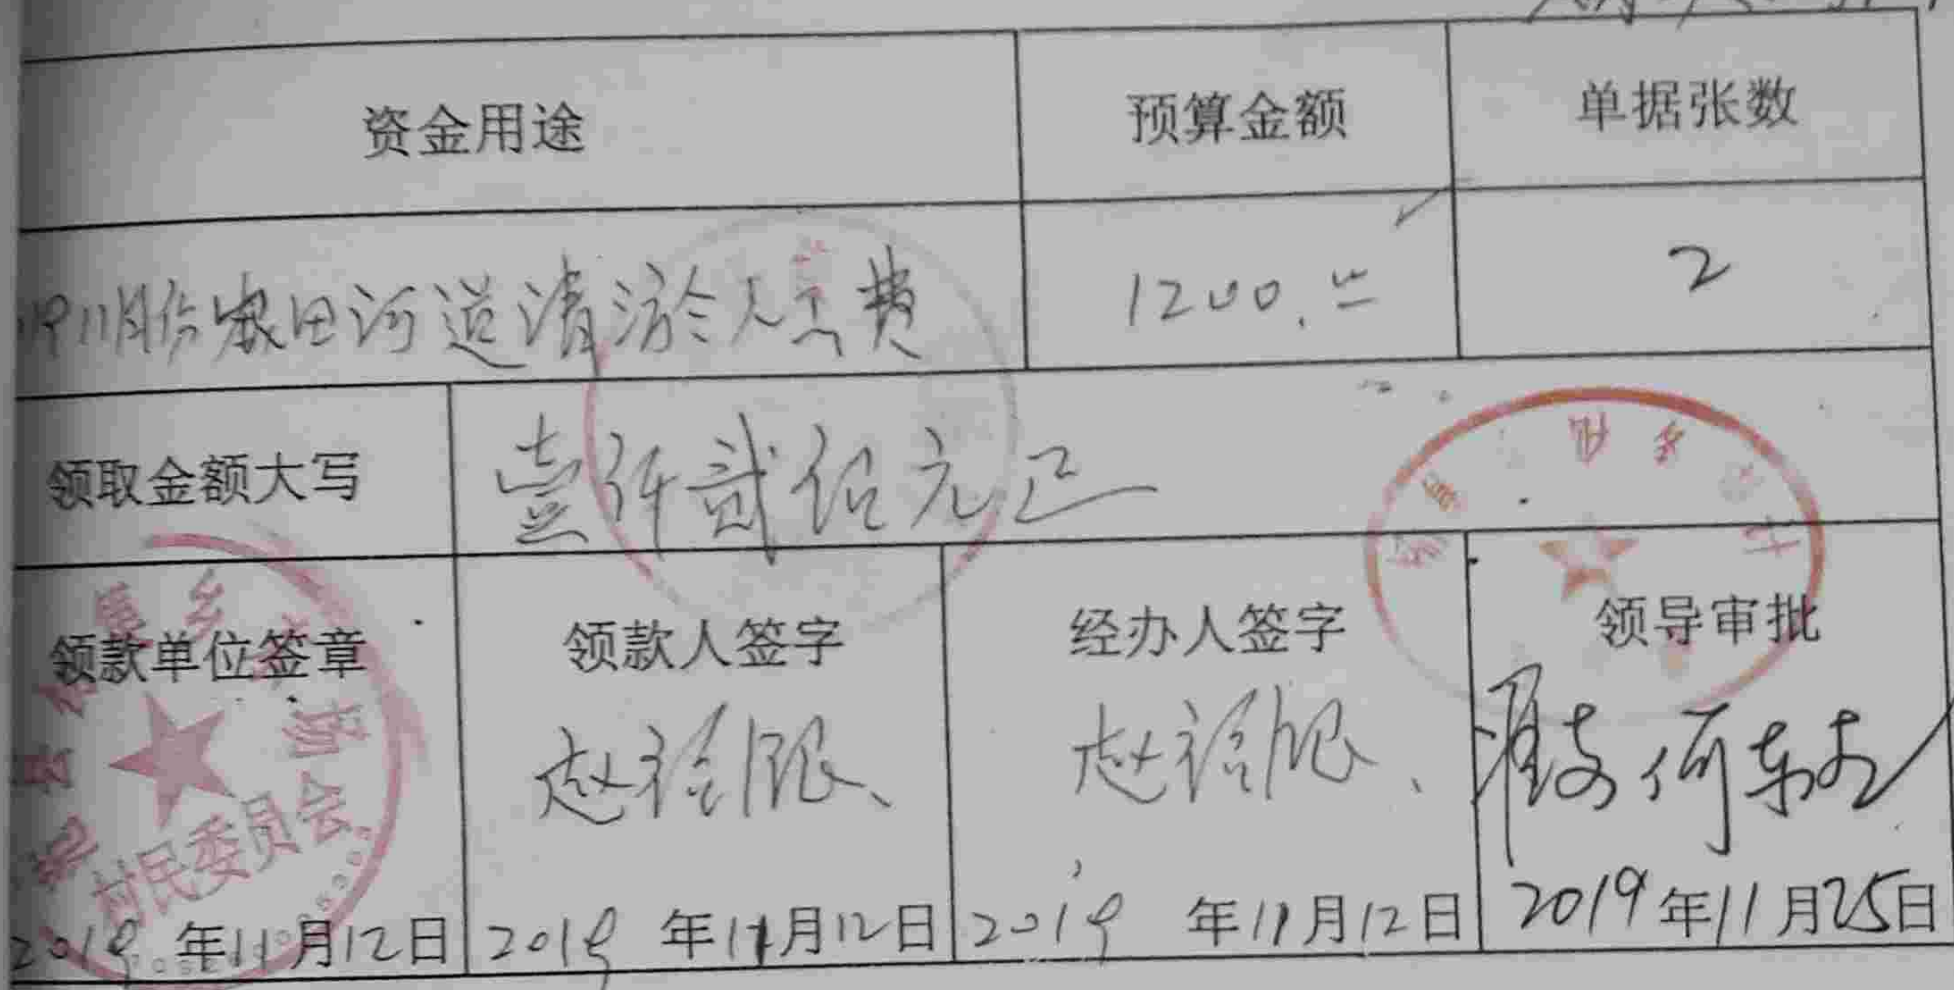 资金用途 预算金额 单据张数
11月份农田河道清淤人工费 1200. 2
领取金额大写 壹仟贰佰元正
领款单位签章 领款人签字 经办人签字 领导审批
村民委员会
2019年11月12日 2019年11月12日 2019年11月12日 2019年11月25日